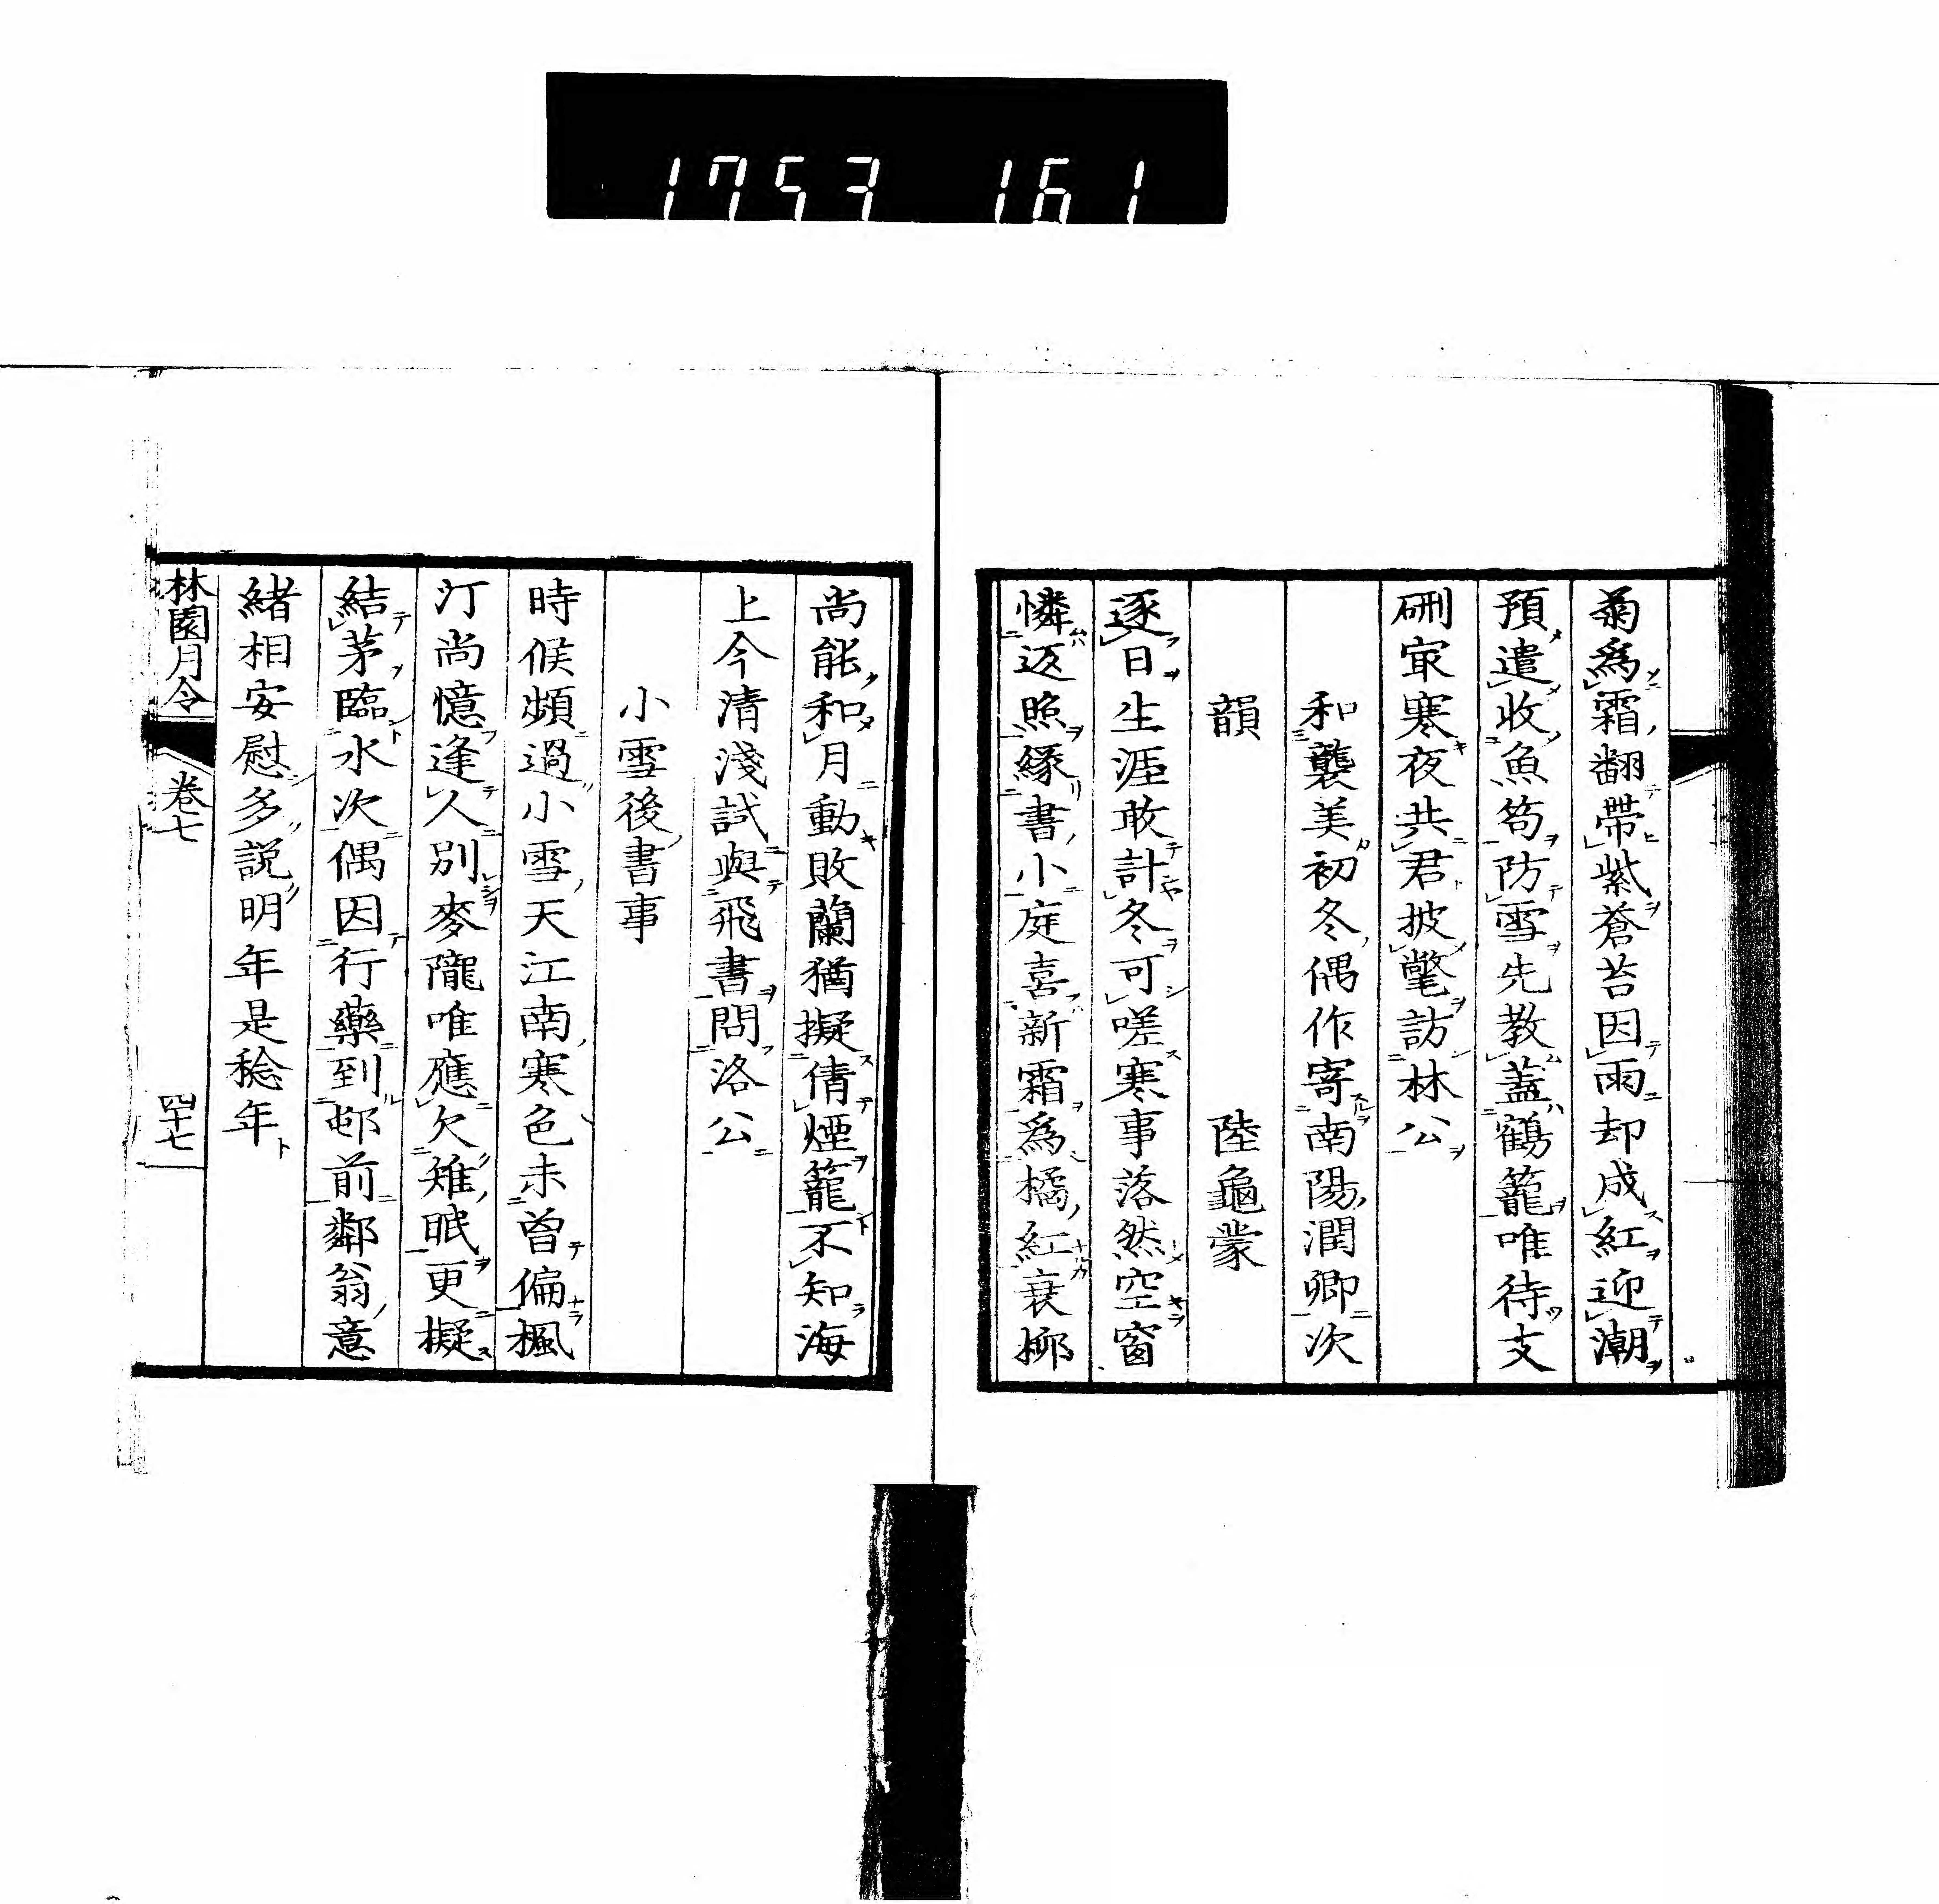 1753 161
菊爲霜翻帶紫蒼苔因雨却成紅迎潮
預遣收魚笱防雪先教蓋鶴籠唯待支
硎㝡寒夜共君披氅訪林公
和襲美初冬偶作寄南陽潤卿次
韻 陸龜蒙
逐日生涯敢計冬可嗟寒事落然空窗
憐返照緣書小庭喜新霜爲橘紅衰柳
尚能和月動敗蘭猶擬倩煙籠不知海
上今清淺試與飛書問洛公
小雪後書事
時候頻過小雪天江南寒色未曽偏楓
汀尚憶逢人別麥隴唯應欠雉眠更擬
結茅臨水次偶因行藥到邨前鄰翁意
緒相安慰多說明年是稔年
林園月令 卷七 四十七